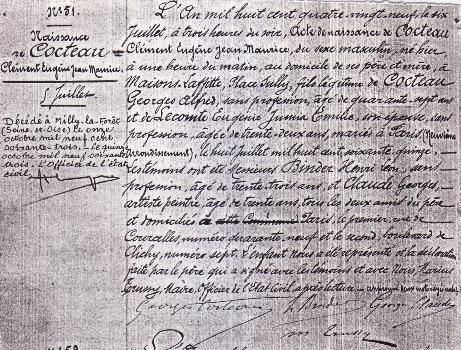 N° 51.
Naissance
de Cocteau
Clément Eugène Jean Maurice.
5 Juillet
Décédé à Milly-la-Forêt
(Seine-et-Oise) le onze
octobre mil neuf cent
soixante-trois. Le quinze
octobre mil neuf soixante
trois. L'Officier de l'état
civil,
L'An mil huit cent quatre-vingt-neuf, le six
Juillet, à trois heures du soir, Acte de naissance de Cocteau
Clément Eugène Jean Maurice, du sexe masculin, né hier
à une heure du matin, au domicile de ses père et mère, à
Maisons-Laffitte, Place Sully, fils légitime de Cocteau
Georges Alfred, sans profession, âgé de quarante-sept ans
et de Lecomte Eugénie Junia Emilie, son épouse, sans
profession, âgée de trente-deux ans, mariés à Paris (Neuvième
Arrondissement), le huit Juillet mil huit cent soixante-quinze.
Les témoins ont été Messieurs Binder Henri sans
profession, âgé de trente-trois ans, et Claude Georges,
artiste peintre, âgé de trente ans, tous les deux amis du père
et domiciliés à Paris, le premier, rue de
Courcelles, numéro quarante-neuf et le second, boulevard de
Clichy, numéro sept. L'enfant nous a été représenté et la déclaration
faite par le père qui a signé avec les témoins et avec Nous, Marius
Maire, Officier de l'Etat Civil, après lecture.
Georges Cocteau Georges Claude